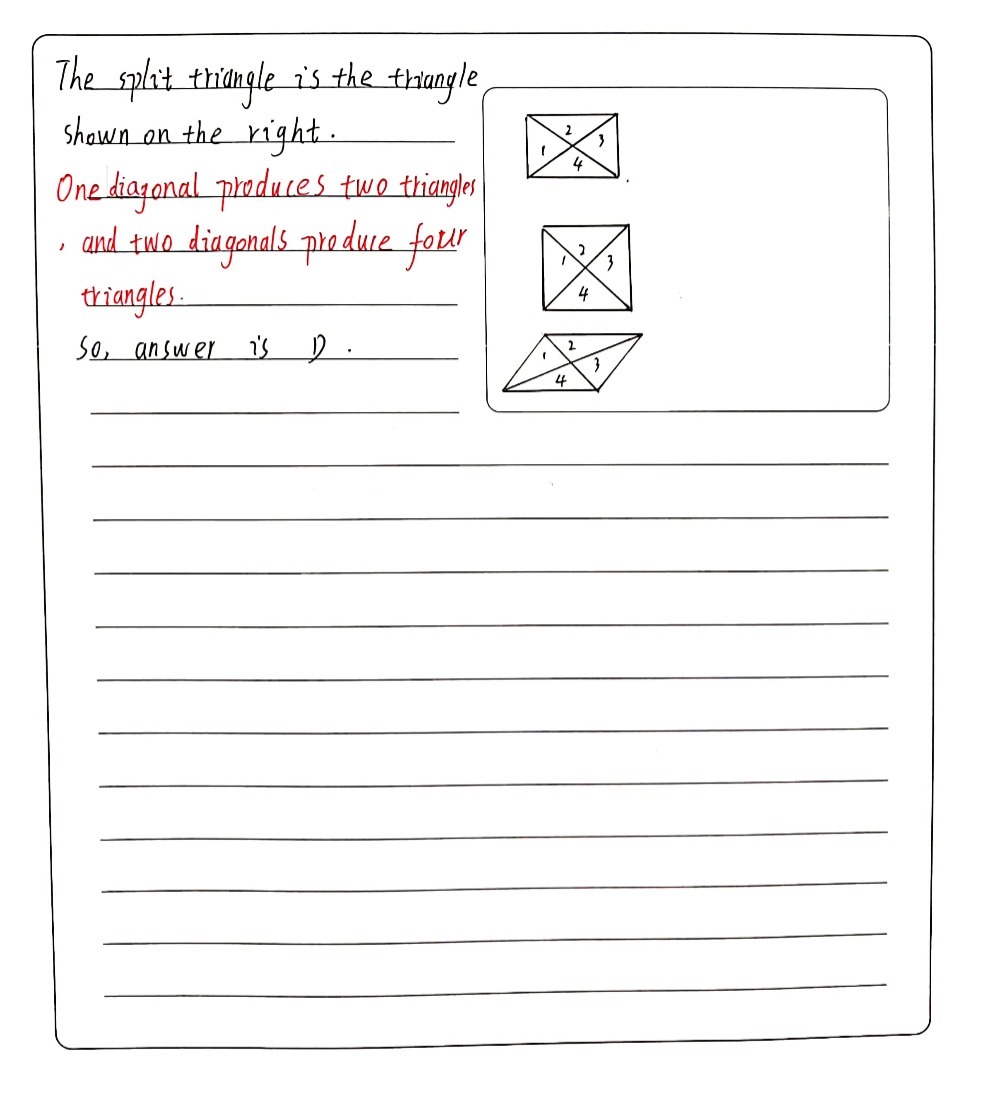 The split triangle is the triangle
shown on the right.
One diagonal produces two triangles
, and two diagonals produce four
triangles.
So, answer is D.
2
1
3
4
2
1
3
4
2
1
3
4